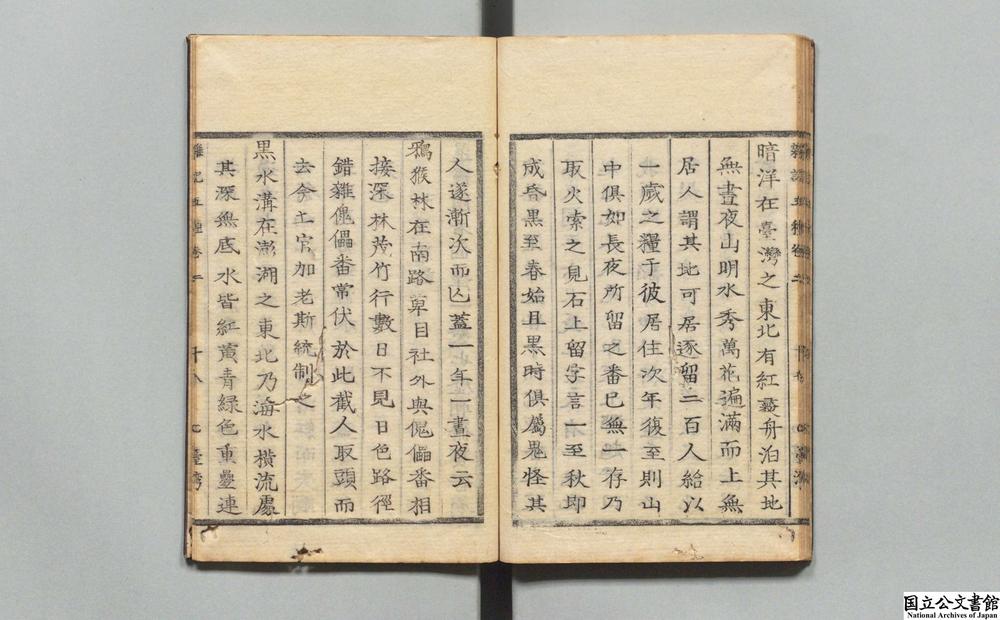 暗洋在臺灣之東北有紅彝舟泊其地
無晝夜山明水秀萬花遍滿而上無
居人謂其地可居遂留二百人給以
一歲之糧于彼居住次年復至則山
中俱如長夜所留之番已無一存乃
取火索之見石上留字言一至秋即
成昏黑至春始旦黑時俱屬鬼怪其
人遂漸次而亾蓋一年一晝夜云
鴉猴林在南路萆目社外與傀儡番相
接深林茂竹行數日不見日色路徑
錯雜傀儡番常伏於此截人取頭而
去今土官加老斯統制之
黑水溝在澎湖之東北乃海水橫流處
其深無底水皆紅黃青綠色重疊連
雜記五種卷二
十八
臺灣
国立公文書館
National Archives of Japan